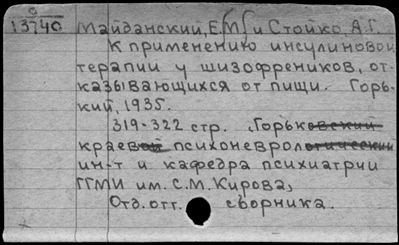 13740
Майданский, Е.М. и Стойко, А.Г.
К применению инсулиновой
терапии у шизофреников, от-
казывающихся от пищи. Горь-
кий, 1935.
319-322 стр. Горьковский
краевой психоневрологический
ин-т и кафедра психиатрии
ГГМИ им. С.М. Кирова,
Отд. отт. сборника.